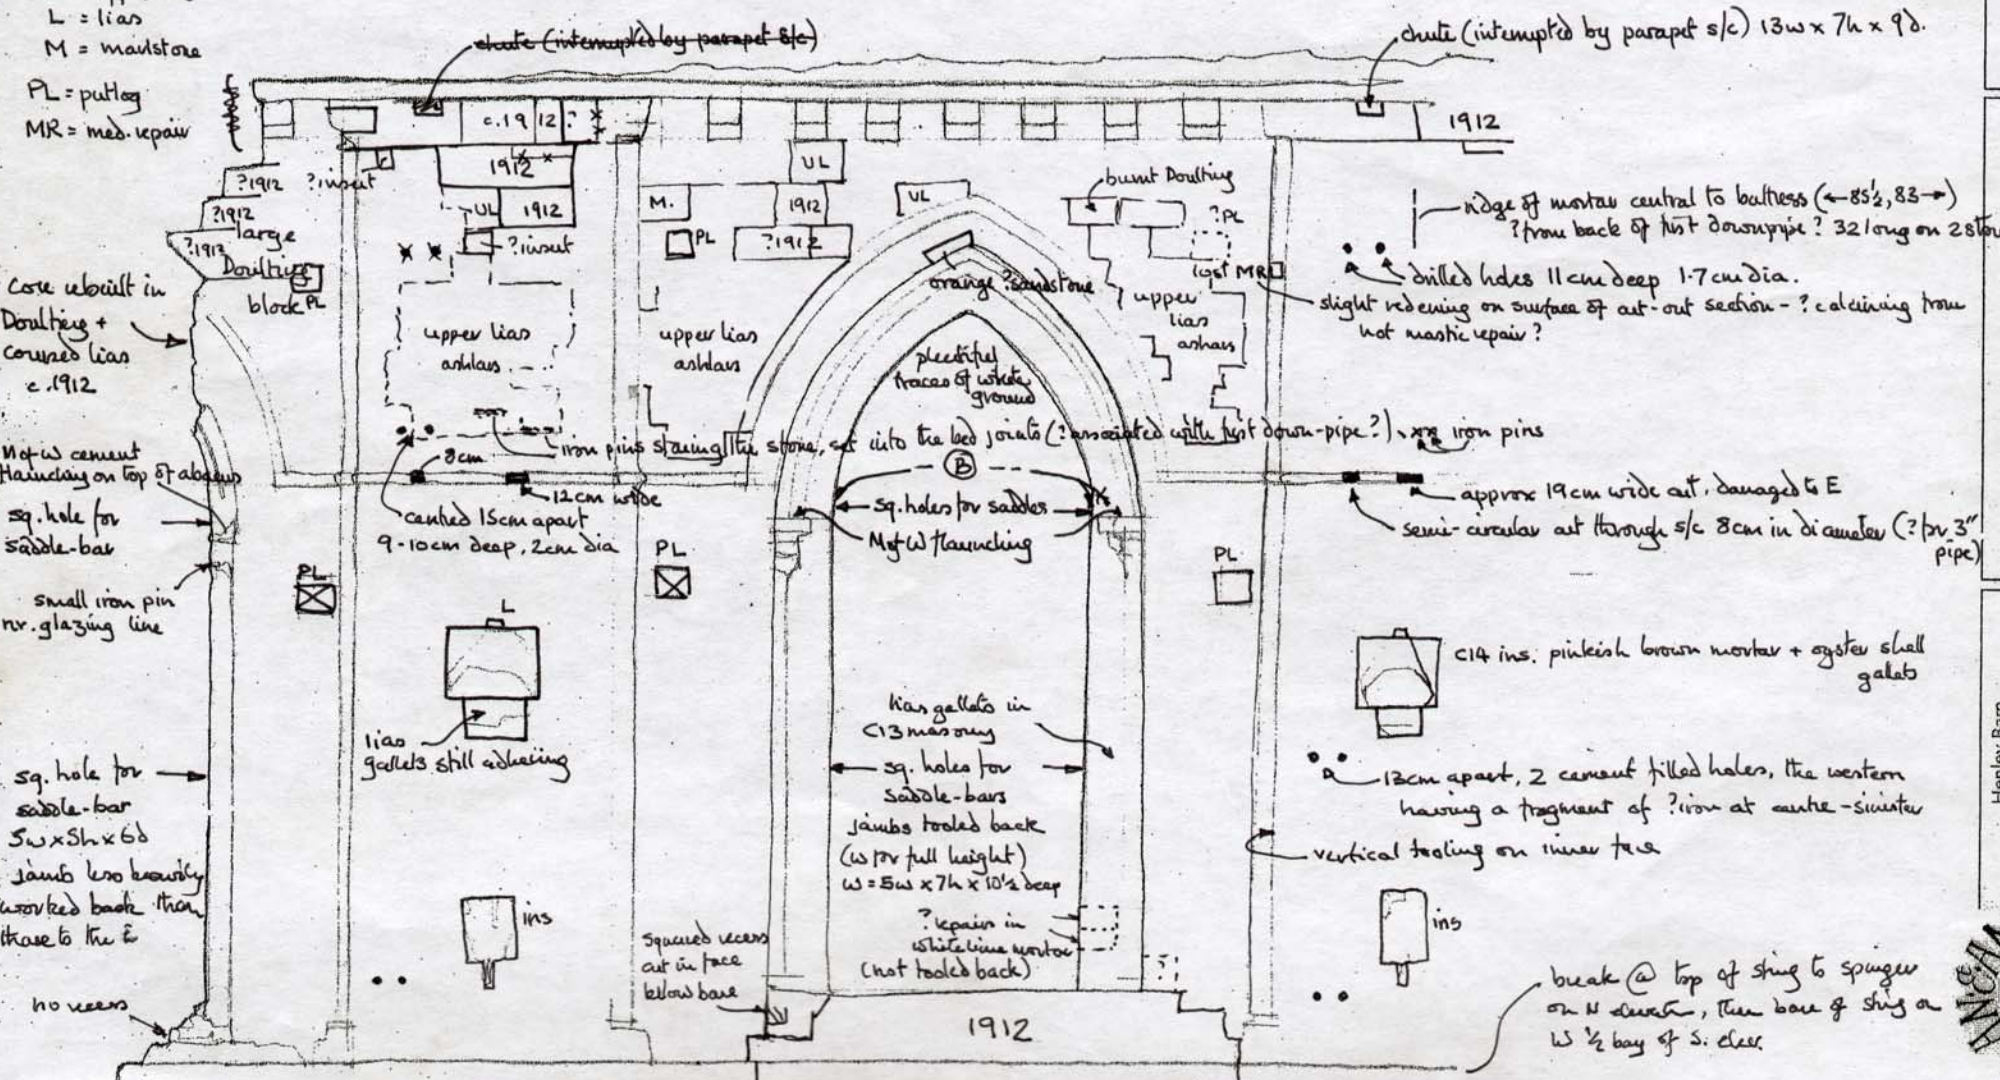 L = lias
M = marlstone
PL = putlog
MR = med. repair
chute (interrupted by parapet s/c)
chute (interrupted by parapet s/c) 13w x 7h x 9d.
c.19 12 ?
1912
1912
?1912 ?insert
UL
UL 1912
?insert
M.
PL
1912
?1912
UL
burnt Doulting
?PL
lost MR
?1912
large
?1912
Doulting
block PL
ridge of mortar central to buttress (←85½, 83→)
?from back of first downpipe? 32 long on 2 sto
drilled holes 11cm deep 1.7cm dia.
slight redening on surface of cut-out section - ? calcining from
hot mastic repair?
core rebuilt in
Doulting +
coursed lias
c.1912
upper lias
ashlars
upper lias
ashlars
orange ?sandstone
upper
lias
ashlars
plentiful
traces of white
ground
iron pins staning the stone, set into the bed joints (?associated with first down-pipe?)
xx iron pins
M of W cement
flaunching on top of abacus
sq. hole for
saddle-bar
small iron pin
nr. glazing line
8cm
12cm wide
centred 15cm apart
9-10cm deep, 2cm dia
B
sq. holes for saddles
M of W flaunching
approx 19cm wide cut, damaged to E
semi-circular cut through s/c 8cm in diameter (?for 3"
pipe)
PL
PL
PL
L
lias
gallets still adhering
C14 ins. pinkish brown mortar + oyster shell
gallets
lias gallets in
C13 masonry
sq. holes for
saddle-bars
jambs tooled back
(w for full height)
w = 5w x 7h x 10½ deep
13cm apart, 2 cement filled holes, the western
having a fragment of ?iron at centre-sinister
vertical tooling on inner face
sq. hole for
saddle-bar
5w x 5h x 6d
jamb less heavily
worked back than
those to the E
ins
ins
?repairs in
white lime mortar
(not tooled back)
squared recess
cut in face
below base
no recess
1912
break @ top of string to springer
on N elevation, then base of string on
W ½ bay of S. elev.
Henley Barn